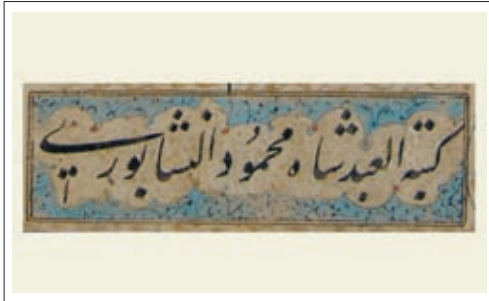 كتبه العبد شاه محمود النشابوري